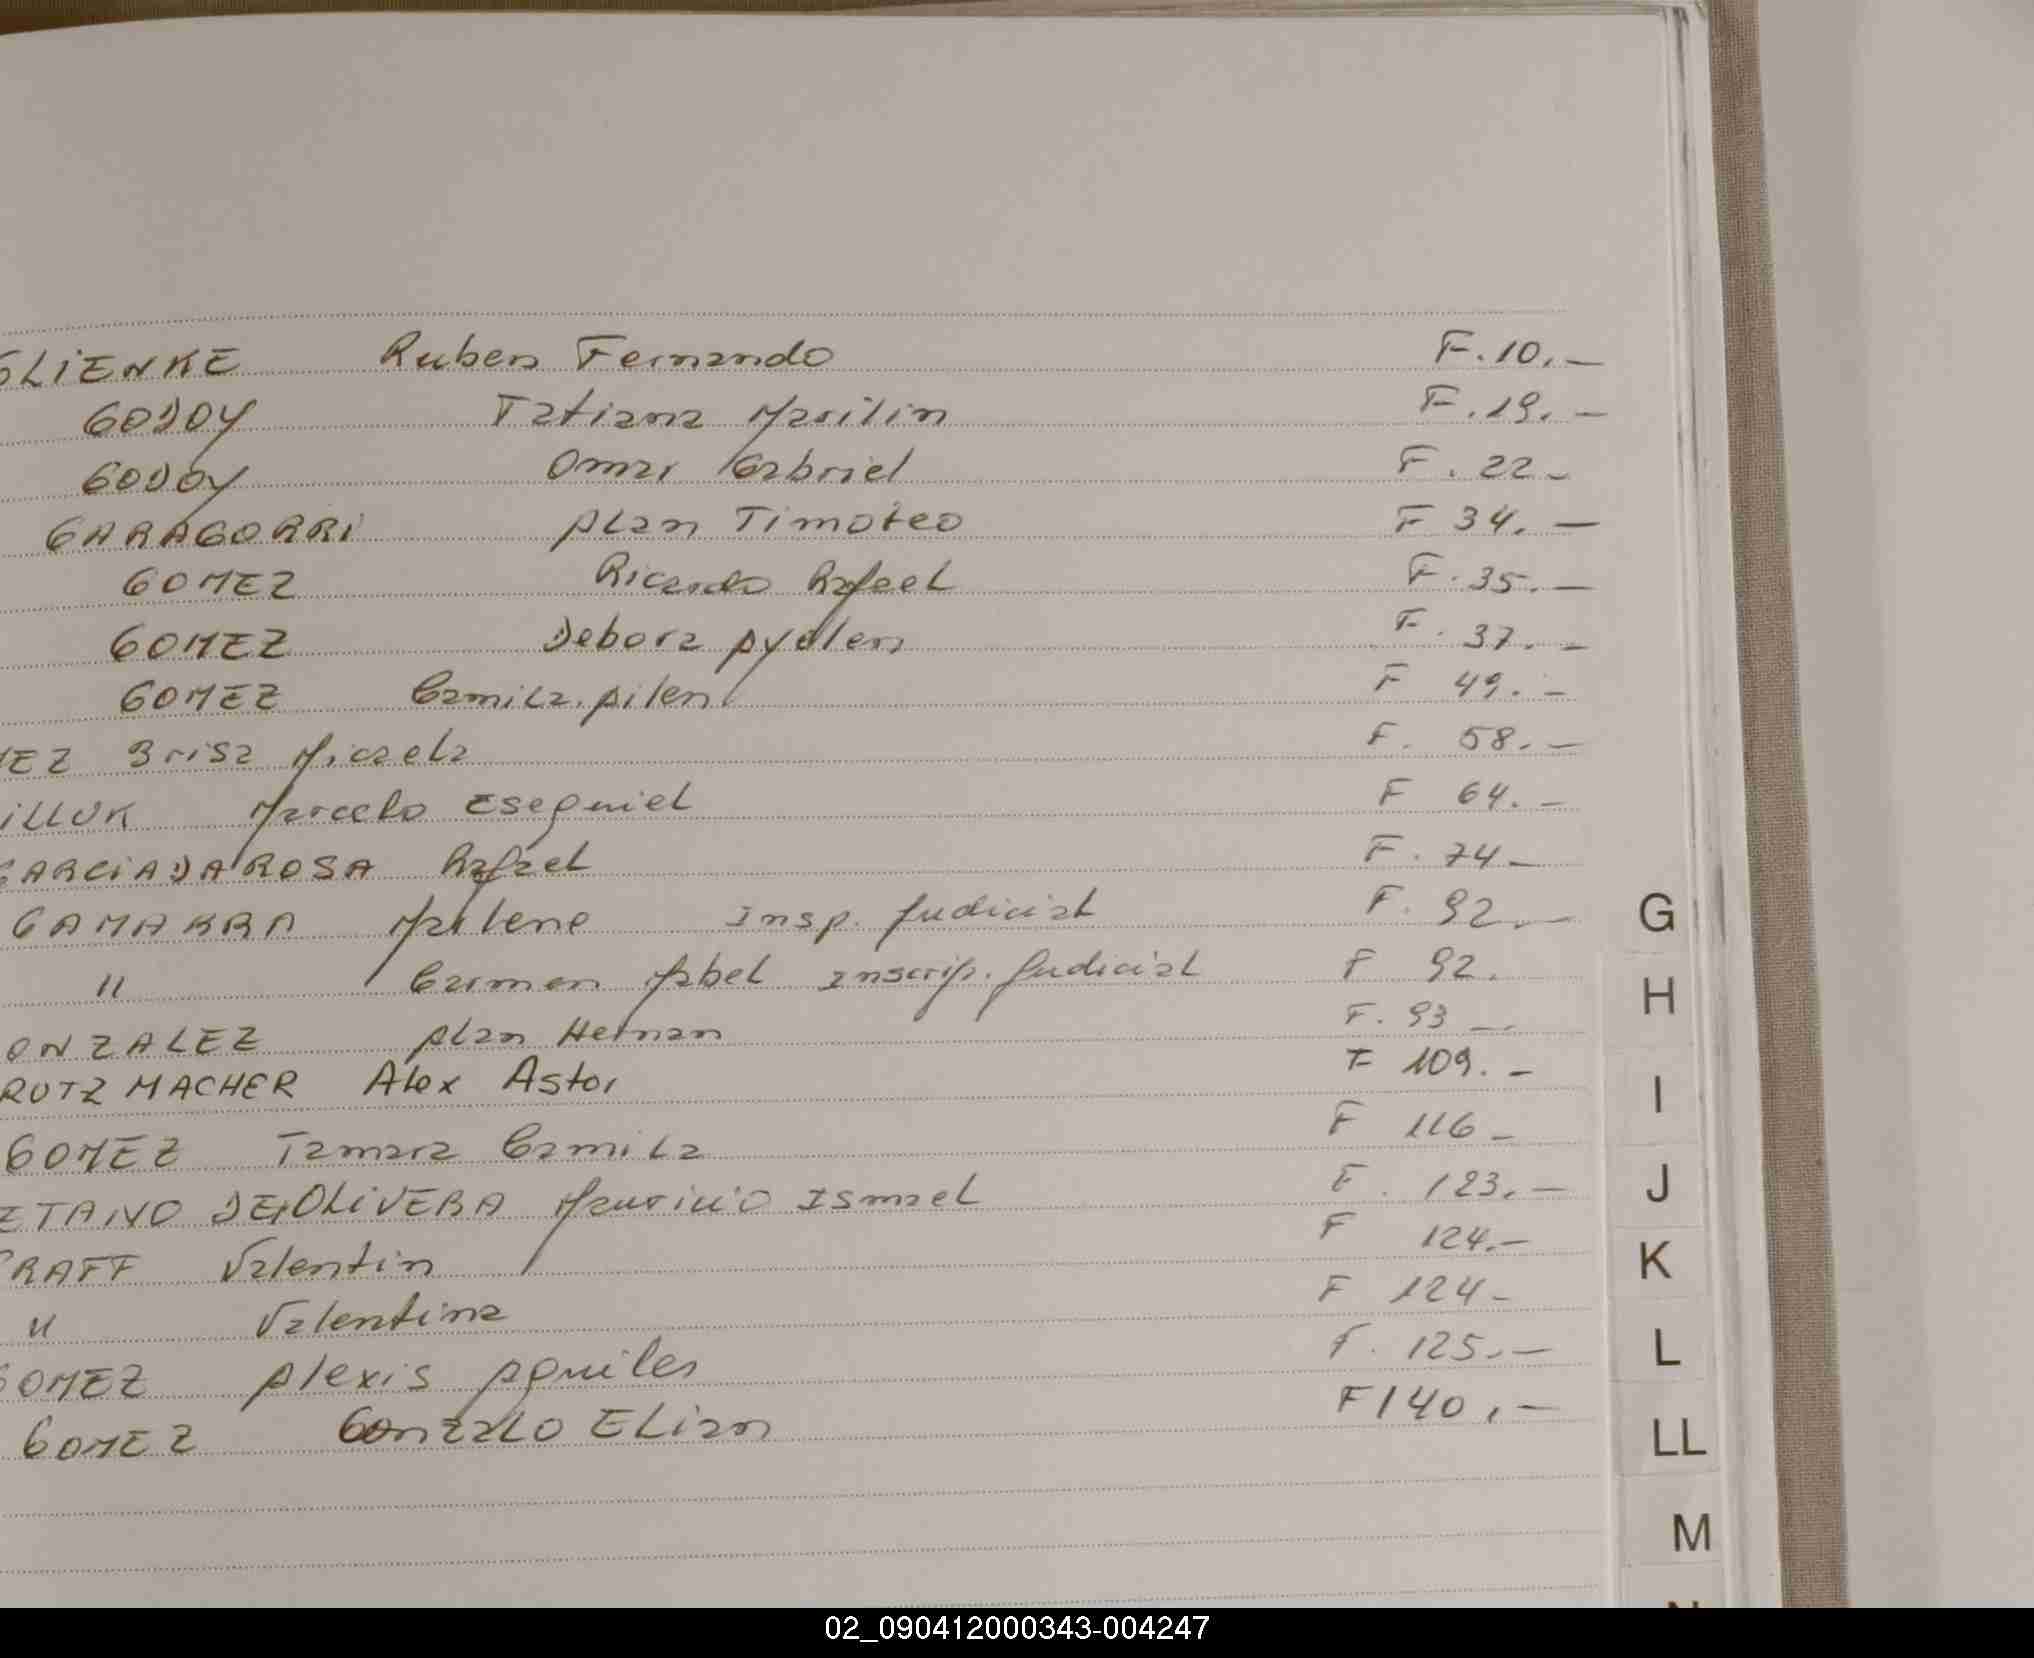 GLIENKE Ruben Fernando F. 10. —
GODOY Tatiana Marilin F. 19. —
GODOY Omar Gabriel F. 22 -
GARAGORRI Alan Timoteo F 34. —
GOMEZ Ricardo Rafael F. 35. —
GOMEZ Debora Aydlen F. 37. —
GOMEZ Camila Ailen F 49. —
MEZ Brisa Micaela F. 58. —
ILLUK Marcelo Esequiel F 64. —
GARCIA DA ROSA Rafael F. 74 —
GAMARRA Marlene Insp. Judicial F. 92. —
" Carmen Mabel Inscrip. Judicial F 92.
ONZALEZ Alan Hernan F. 93 —
ROTZMACHER Alex Astor F 109. —
GOMEZ Tamara Camila F 116 -
ETANO DE OLIVERA Mauricio Ismael F. 123. —
GRAFF Valentin F 124. —
" Valentina F 124 -
GOMEZ Alexis Aquiles F. 125. —
GOMEZ Gonzalo Elian F 140. —
G
H
I
J
K
L
LL
M
02_090412000343-004247